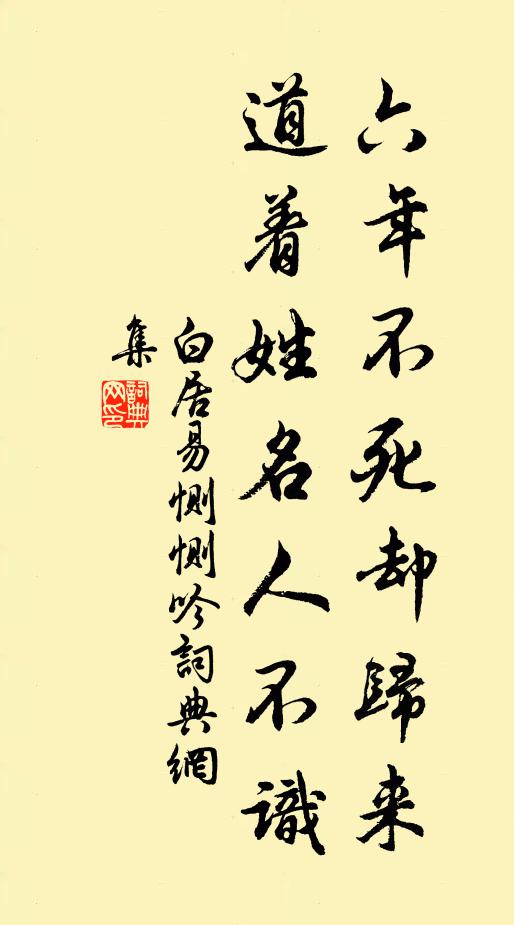 六年不死却歸来
道着姓名人不識
白居易惻惻吟詞典網
集
詞典
网印